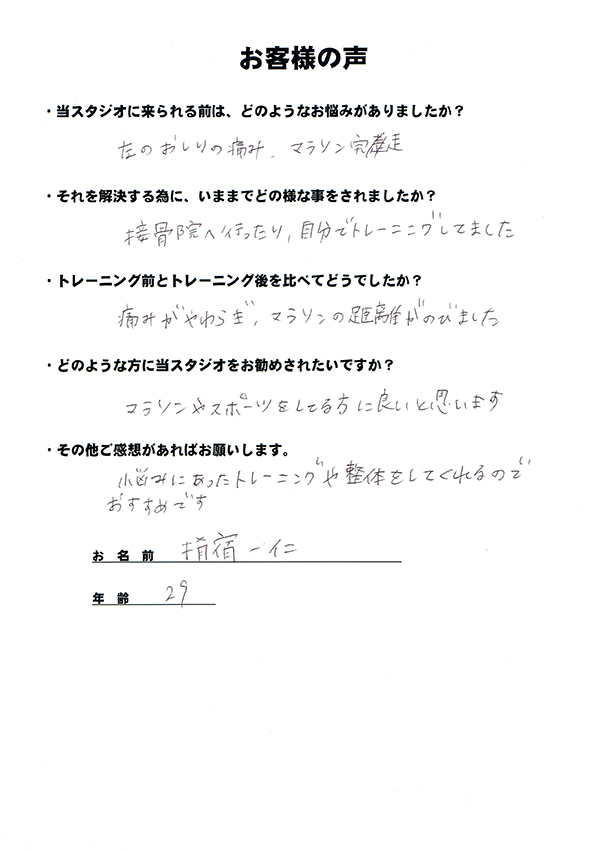 お客様の声
・当スタジオに来られる前は、どのようなお悩みがありましたか？
左のおしりの痛み、マラソン完走
・それを解決する為に、いままでどの様な事をされましたか？
接骨院へ行ったり、自分でトレーニングしてました
・トレーニング前とトレーニング後を比べてどうでしたか？
痛みがやわらぎ、マラソンの距離がのびました
・どのような方に当スタジオをお勧めされたいですか？
マラソンやスポーツをしてる方に良いと思います
・その他ご感想があればお願いします。
悩みにあったトレーニングや整体をしてくれるので
おすすめです
お名前 指宿一仁
年齢 29